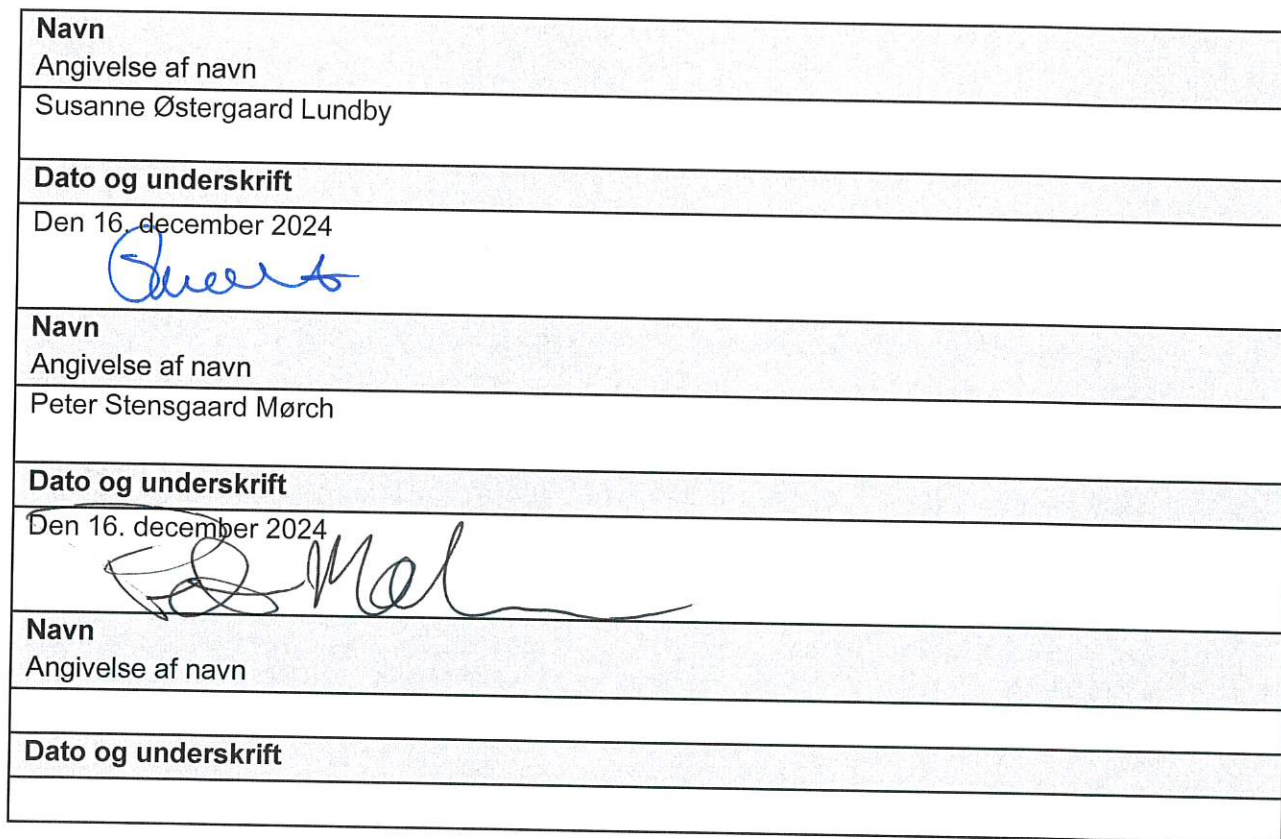 Navn
Angivelse af navn
Susanne Østergaard Lundby
Dato og underskrift
Den 16. december 2024
Navn
Angivelse af navn
Peter Stensgaard Mørch
Dato og underskrift
Den 16. december 2024
Navn
Angivelse af navn
Dato og underskrift